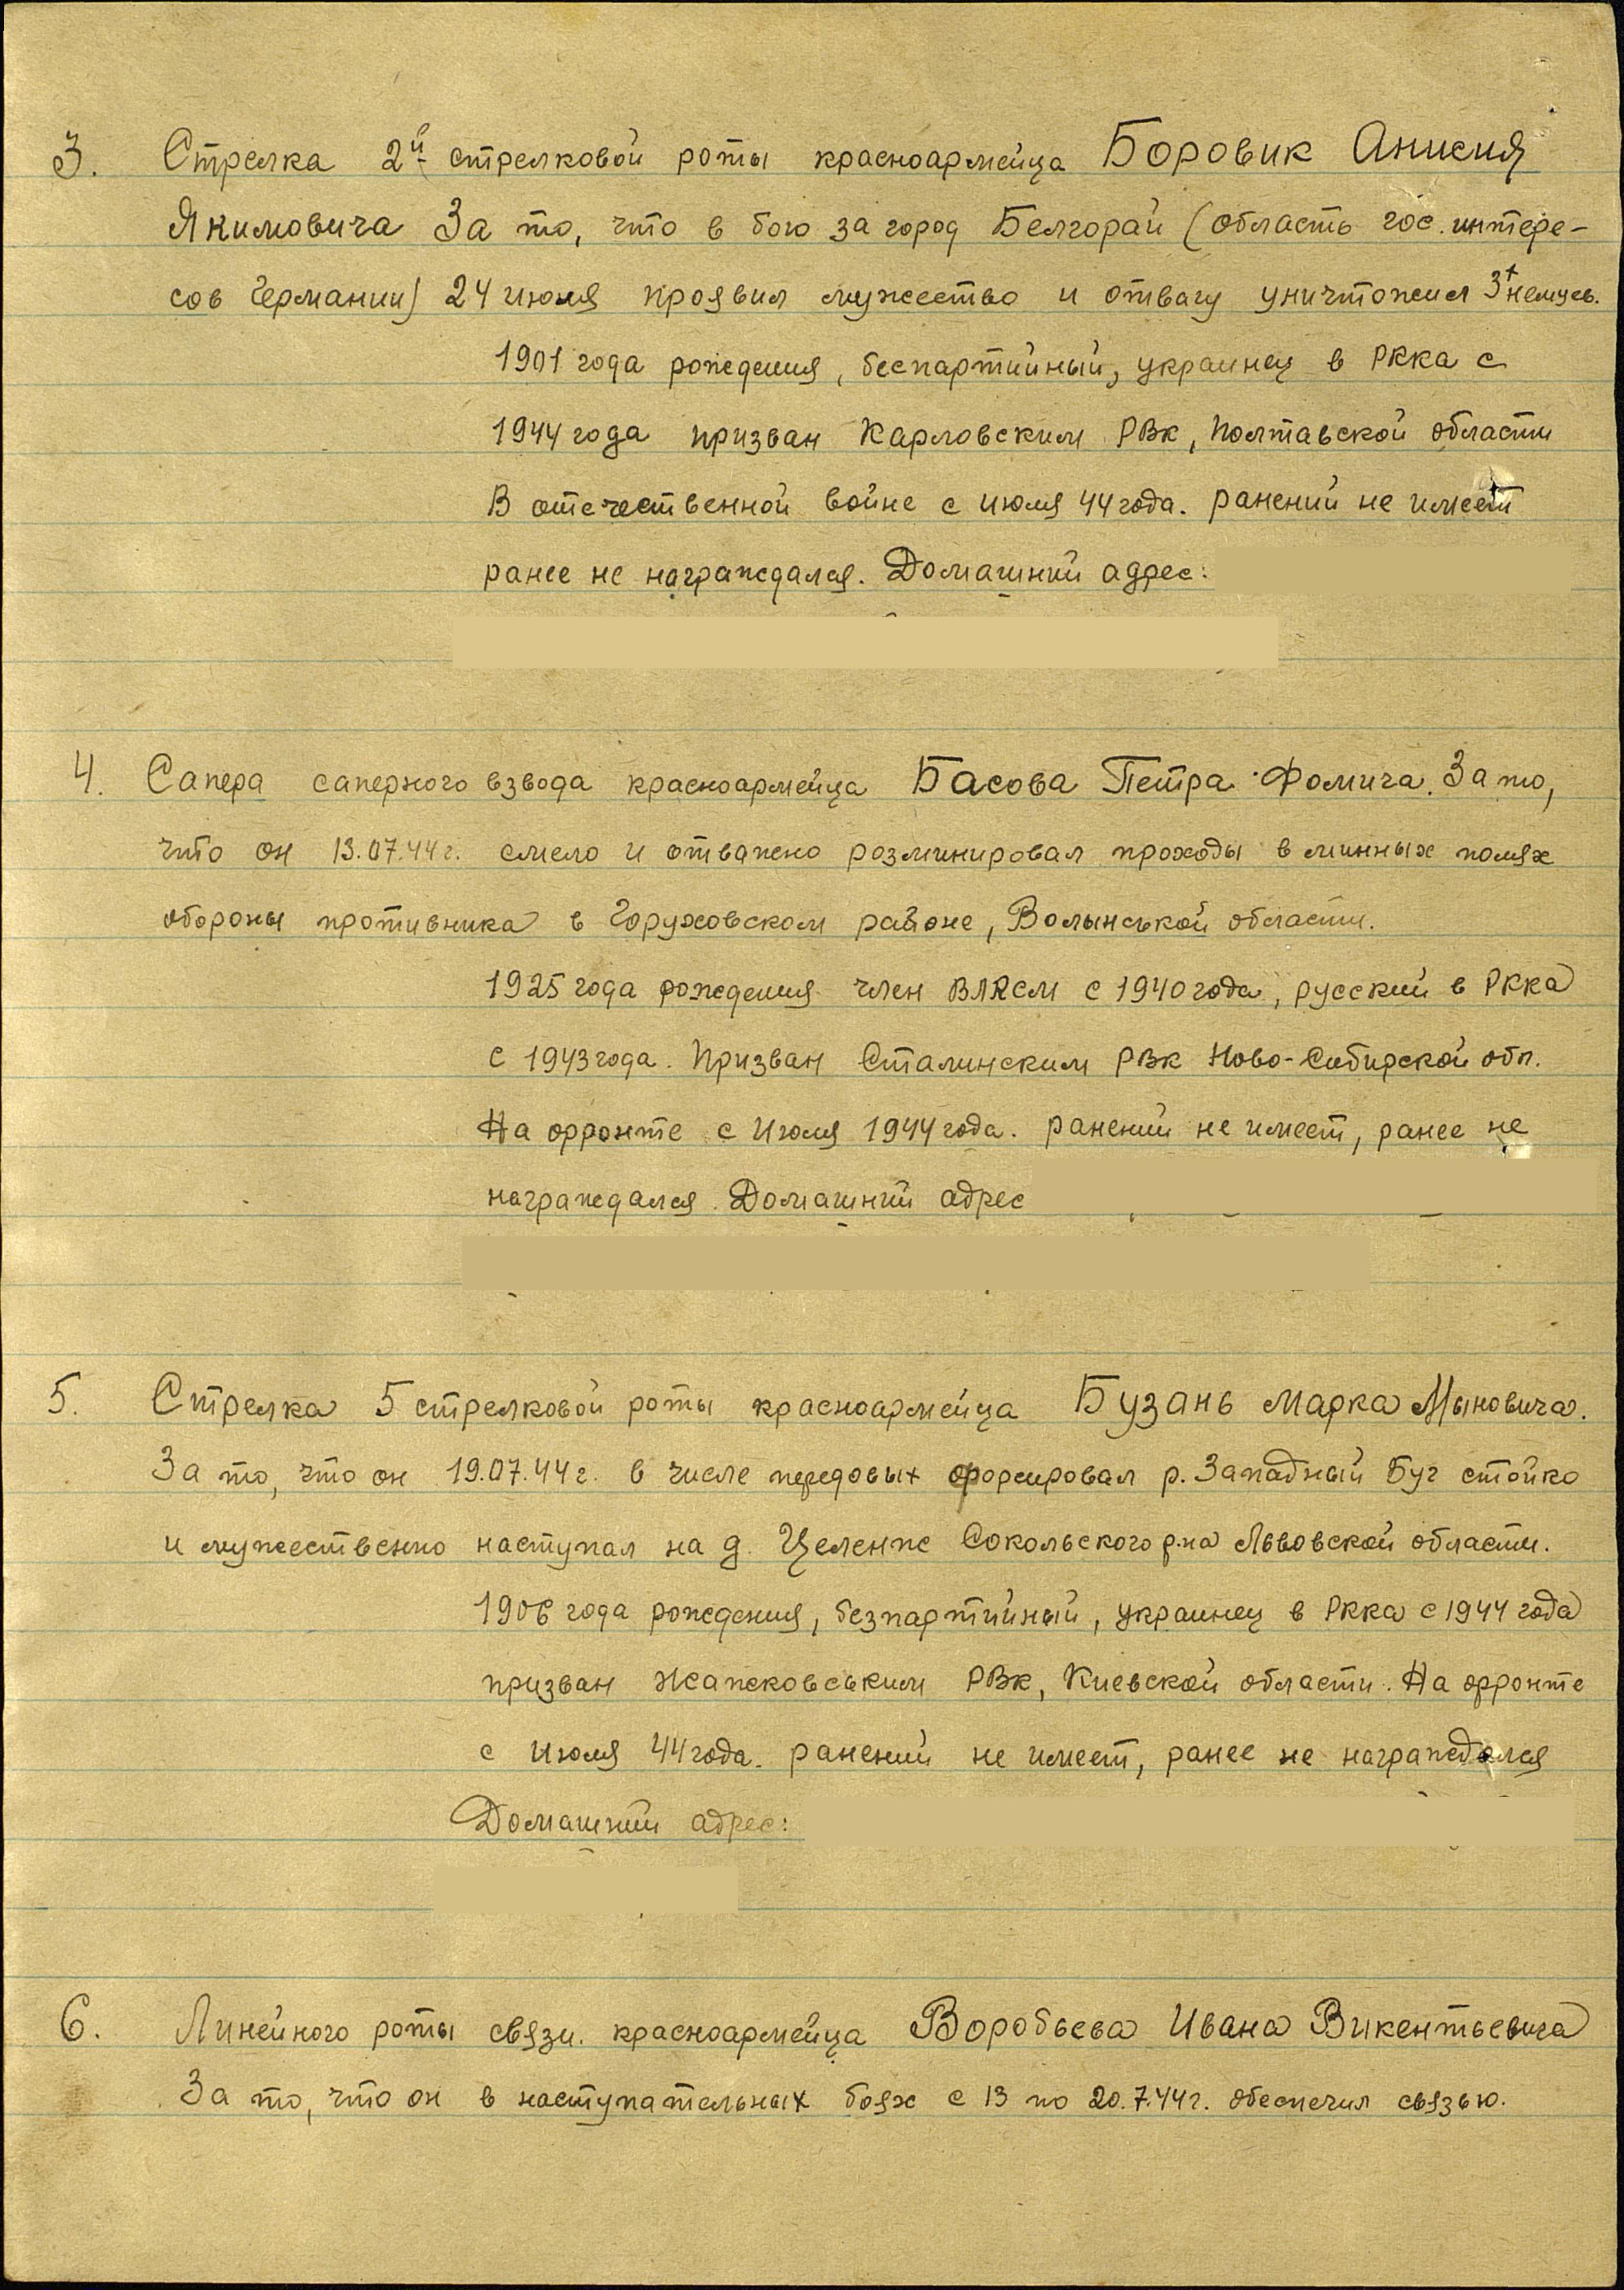 3. Стрелка 2й стрелковой роты красноармейца Боровик Анисия
Якимовича За то, что в бою за город Белгорай (область гос. интере-
сов Германии) 24 июля проявил мужество и отвагу уничтожил 3х немцев.
1901 года рождения, беспартийный, украинец в РККА с
1944 года призван Карловским РВК, Полтавской области
В отечественной войне с июля 44 года. ранений не имеет
ранее не награждался. Домашний адрес:
4. Сапера саперного взвода красноармейца Басова Петра Фомича. За то,
что он 13.07.44 г. смело и отважно розминировал проходы в минных полях
обороны противника в Горуховском районе, Волынськой области.
1925 года рождения член ВЛКСМ с 1940 года, русский в РККА
с 1943 года. Призван Сталинским РВК Ново-Сибирской обл.
На фронте с Июля 1944 года. ранений не имеет, ранее не
награждался. Домашний адрес
5. Стрелка 5 стрелковой роты красноармейца Бузань Марка Мыновича.
За то, что он 19.07.44 г. в числе передовых форсировал р. Западный Буг стойко
и мужественно наступал на д. Целенже Сокольского р-на Львовской области.
1906 года рождения, безпартийный, украинец в РККА с 1944 года
призван Жажковським РВК, Киевской области. На фронте
с Июля 44 года. ранений не имеет, ранее не награждался
Домашний адрес:
6. Линейного роты связи. красноармейца Воробьева Ивана Викентьевича
За то, что он в наступательных боях с 13 по 20.7.44 г. обеспечил связью.